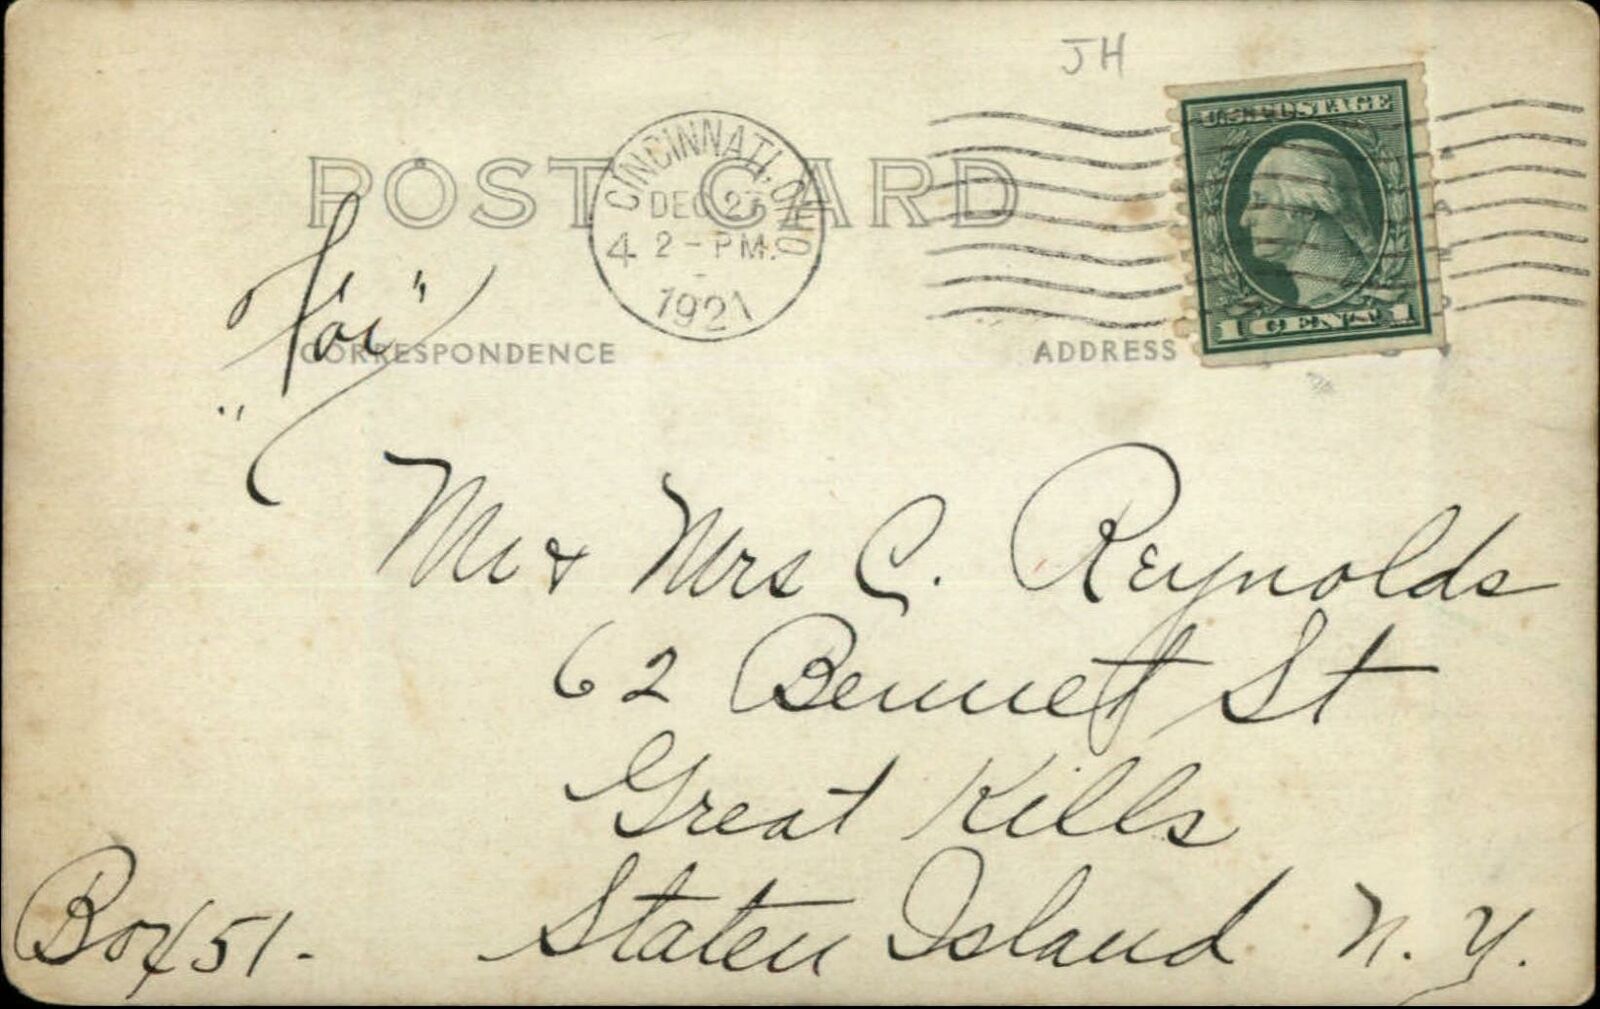 JH
POST CARD
CINCINNATI, OHIO
DEC 27
4 2-PM.
1921
1 CENT 1
CORRESPONDENCE
ADDRESS
Mr & Mrs C. Reynolds
62 Bennet St
Great Kills
Staten Island N.Y.
Box 51-